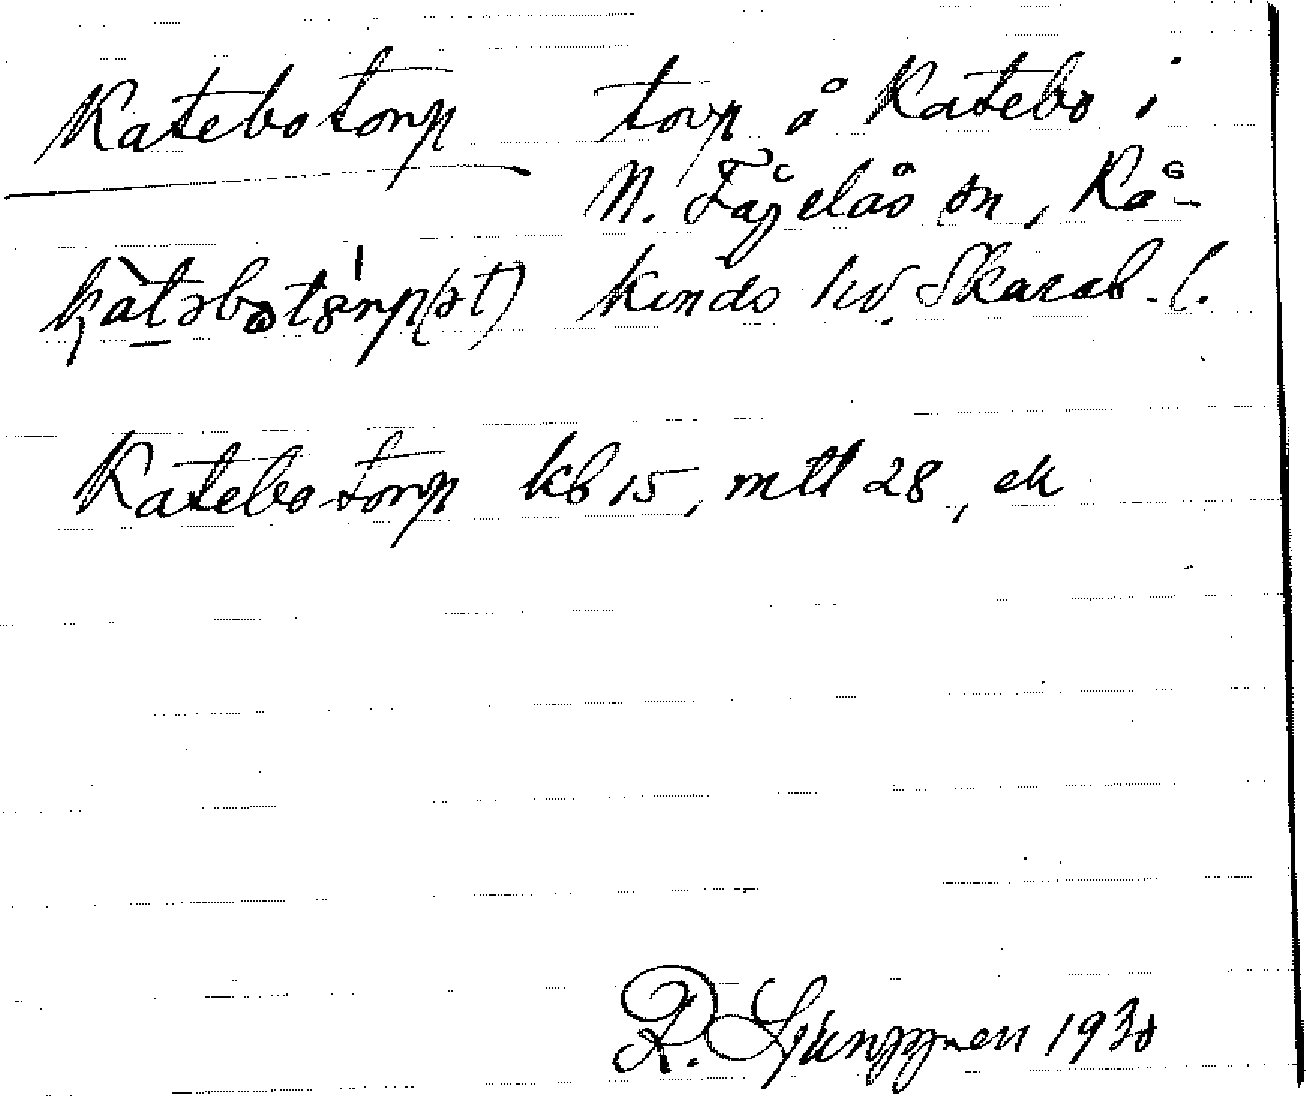 Katebotorp torp å Katebo i
N. Fågelås sn, Kå-
kinds hd. Skarab. l.
Katebotorp kb 15, mtl 28, ek
R. Ljunggren 1930